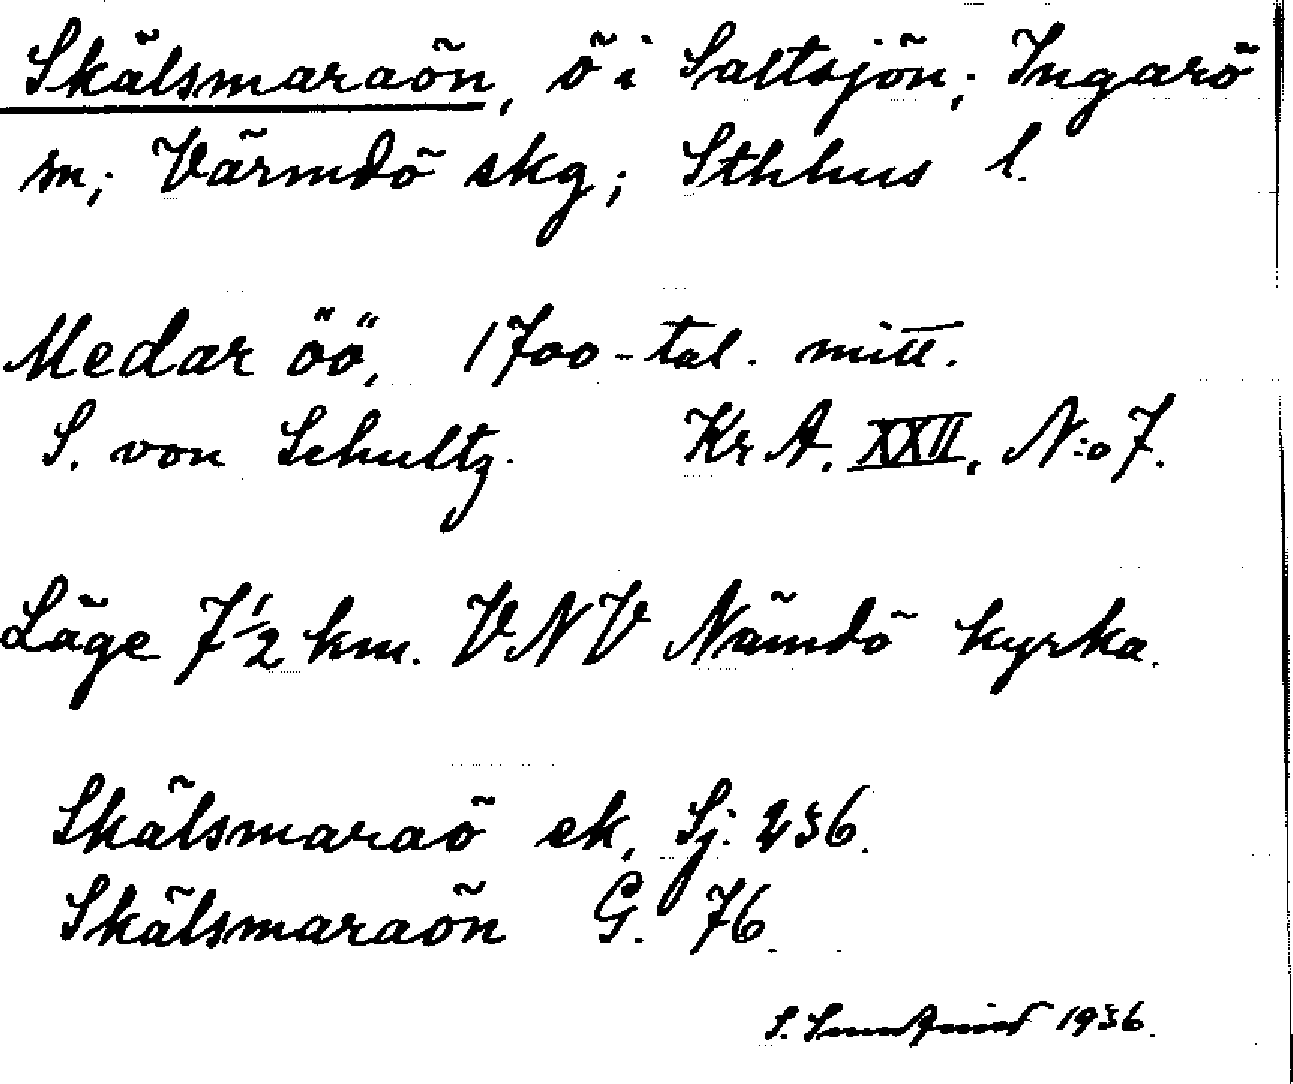 Skälsmaraön, ö i Saltsjön; Ingarö
sn; Värmdö skg; Sthlms l.
Medar öö, 1700-tal. mitt.
S. von Schultz. Kr A. XXII, N:o 7.
Läge 7 1/2 km. VNV Nämdö kyrka.
Skälsmaraö ek, Sj. 236.
Skälsmaraön G. 76.
S. 1936.